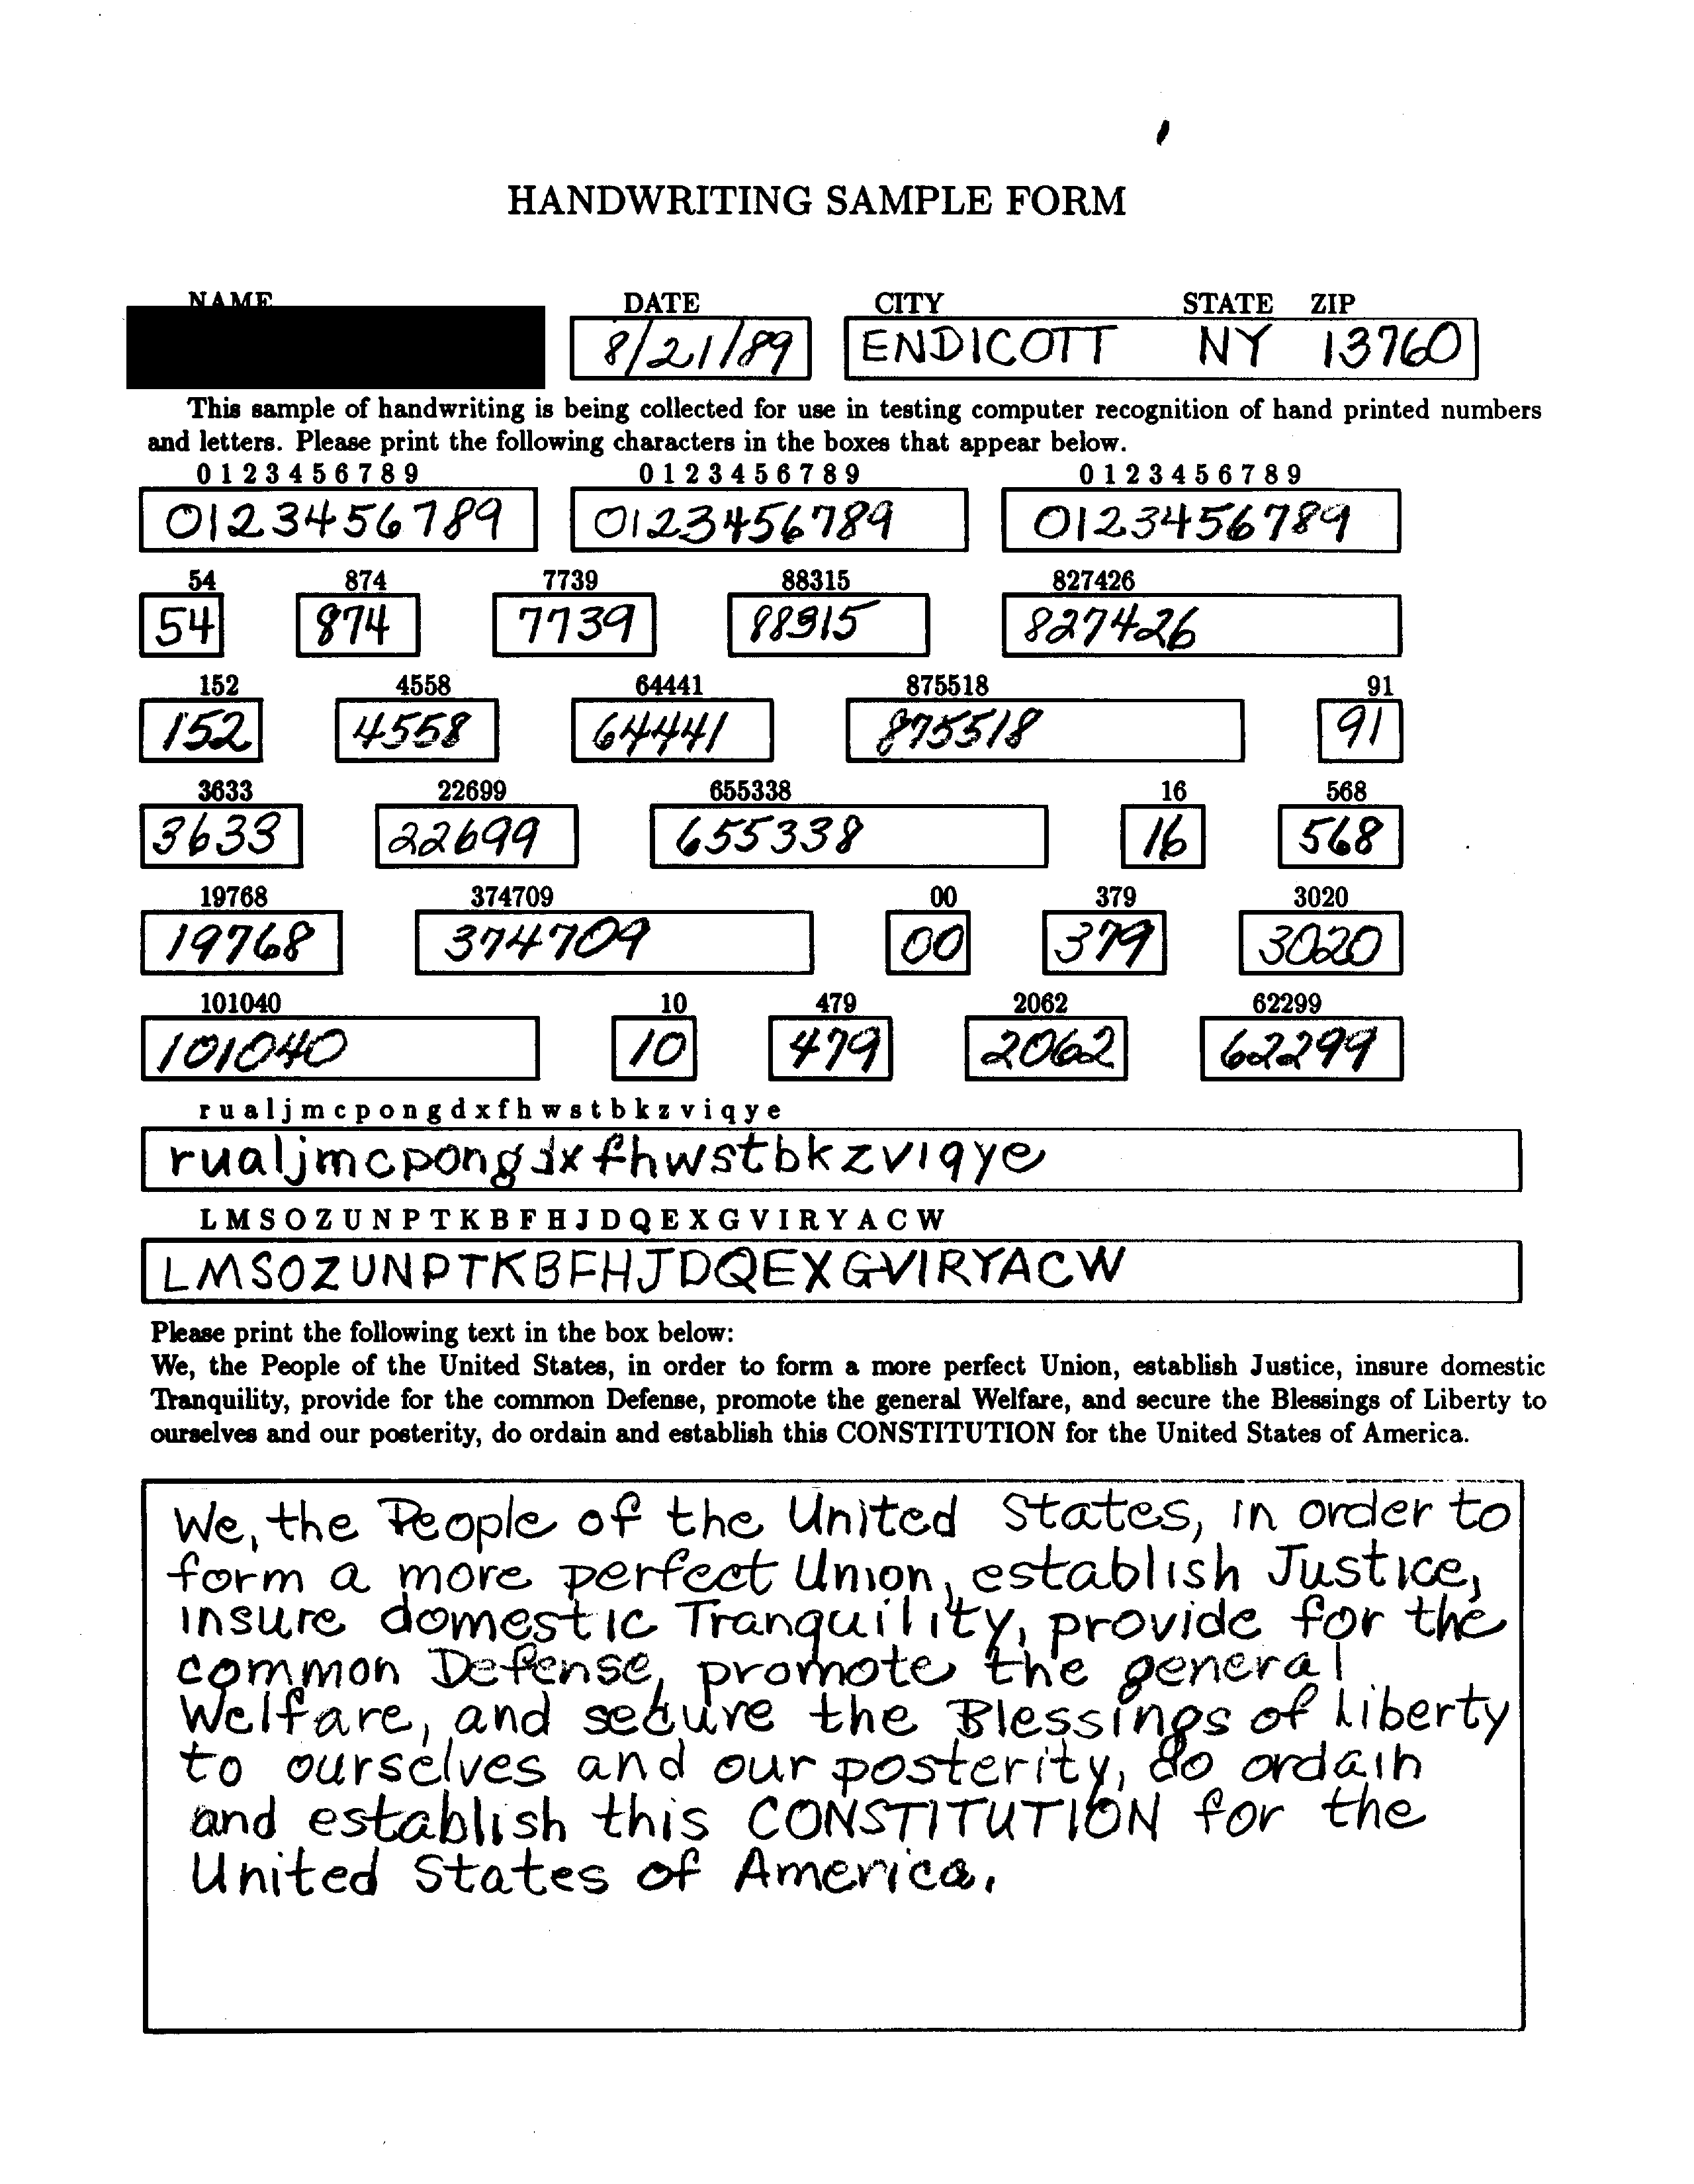 HANDWRITING SAMPLE FORM
NAME DATE CITY STATE ZIP
8/21/89 ENDICOTT NY 13760
This sample of handwriting is being collected for use in testing computer recognition of hand printed numbers
and letters. Please print the following characters in the boxes that appear below.
0 1 2 3 4 5 6 7 8 9 0 1 2 3 4 5 6 7 8 9 0 1 2 3 4 5 6 7 8 9
0123456789 0123456789 0123456789
54 874 7739 88315 827426
54 874 7739 88315 827426
152 4558 64441 875518 91
152 4558 64441 875518 91
3633 22699 655338 16 568
3633 22699 655338 16 568
19768 374709 00 379 3020
19768 374709 00 379 3020
101040 10 479 2062 62299
101040 10 479 2062 62299
r u a l j m c p o n g d x f h w s t b k z v i q y e
rualjmcpongdxfhwstbkzviqye
L M S O Z U N P T K B F H J D Q E X G V I R Y A C W
LMSOZUNPTKBFHJDQEXGVIRYACW
Please print the following text in the box below:
We, the People of the United States, in order to form a more perfect Union, establish Justice, insure domestic
Tranquility, provide for the common Defense, promote the general Welfare, and secure the Blessings of Liberty to
ourselves and our posterity, do ordain and establish this CONSTITUTION for the United States of America.
We, the People of the United States, in order to
form a more perfect Union, establish Justice,
insure domestic Tranquility, provide for the
common Defense, promote the general
Welfare, and secure the Blessings of Liberty
to ourselves and our posterity, do ordain
and establish this CONSTITUTION for the
United States of America.